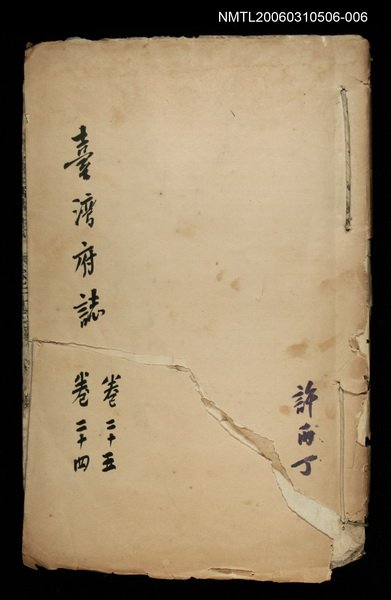 NMTL20060310506-006
許丙丁
臺灣府誌
卷二十五
卷二十四